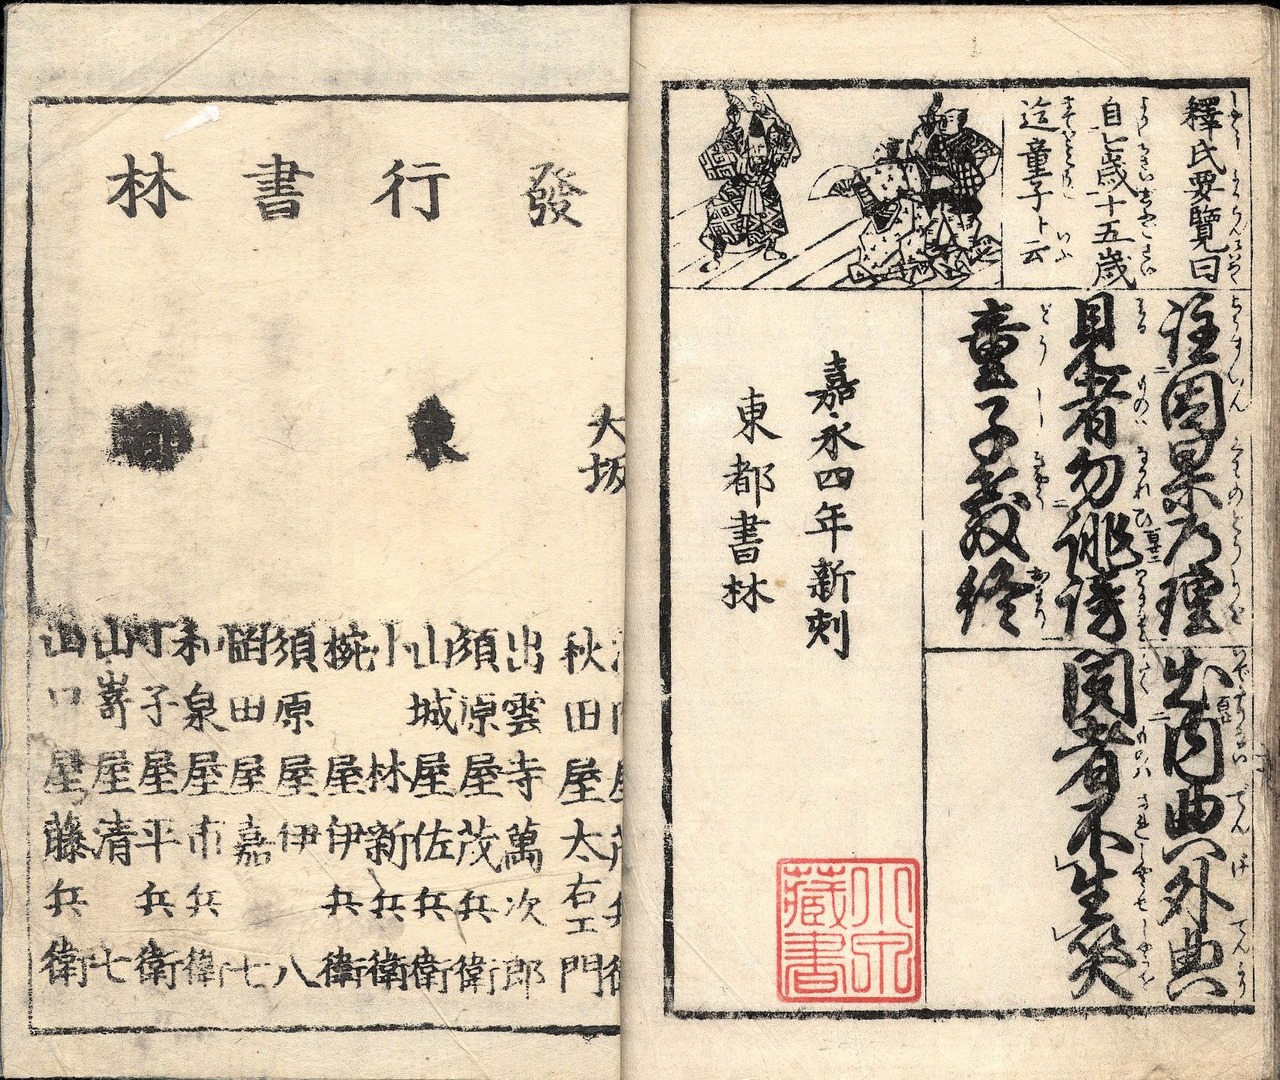 釋氏要覽曰
自七歳十五歳
迄童子ト云
註因果乃理
出内典外典
見者勿誹謗
聞者不生笑
童子教終
嘉永四年新刻
東都書林
小泉藏書
發行書林
大坂
東
都
秋田屋太右エ門
出雲寺萬次郎
須原屋茂兵衛
山城屋佐兵衛
小林新兵衛
椀屋伊兵衛
須原屋伊八
岡田屋嘉七
和泉屋市兵衛
丁子屋平兵衛
山嵜屋清七
山口屋藤兵衛